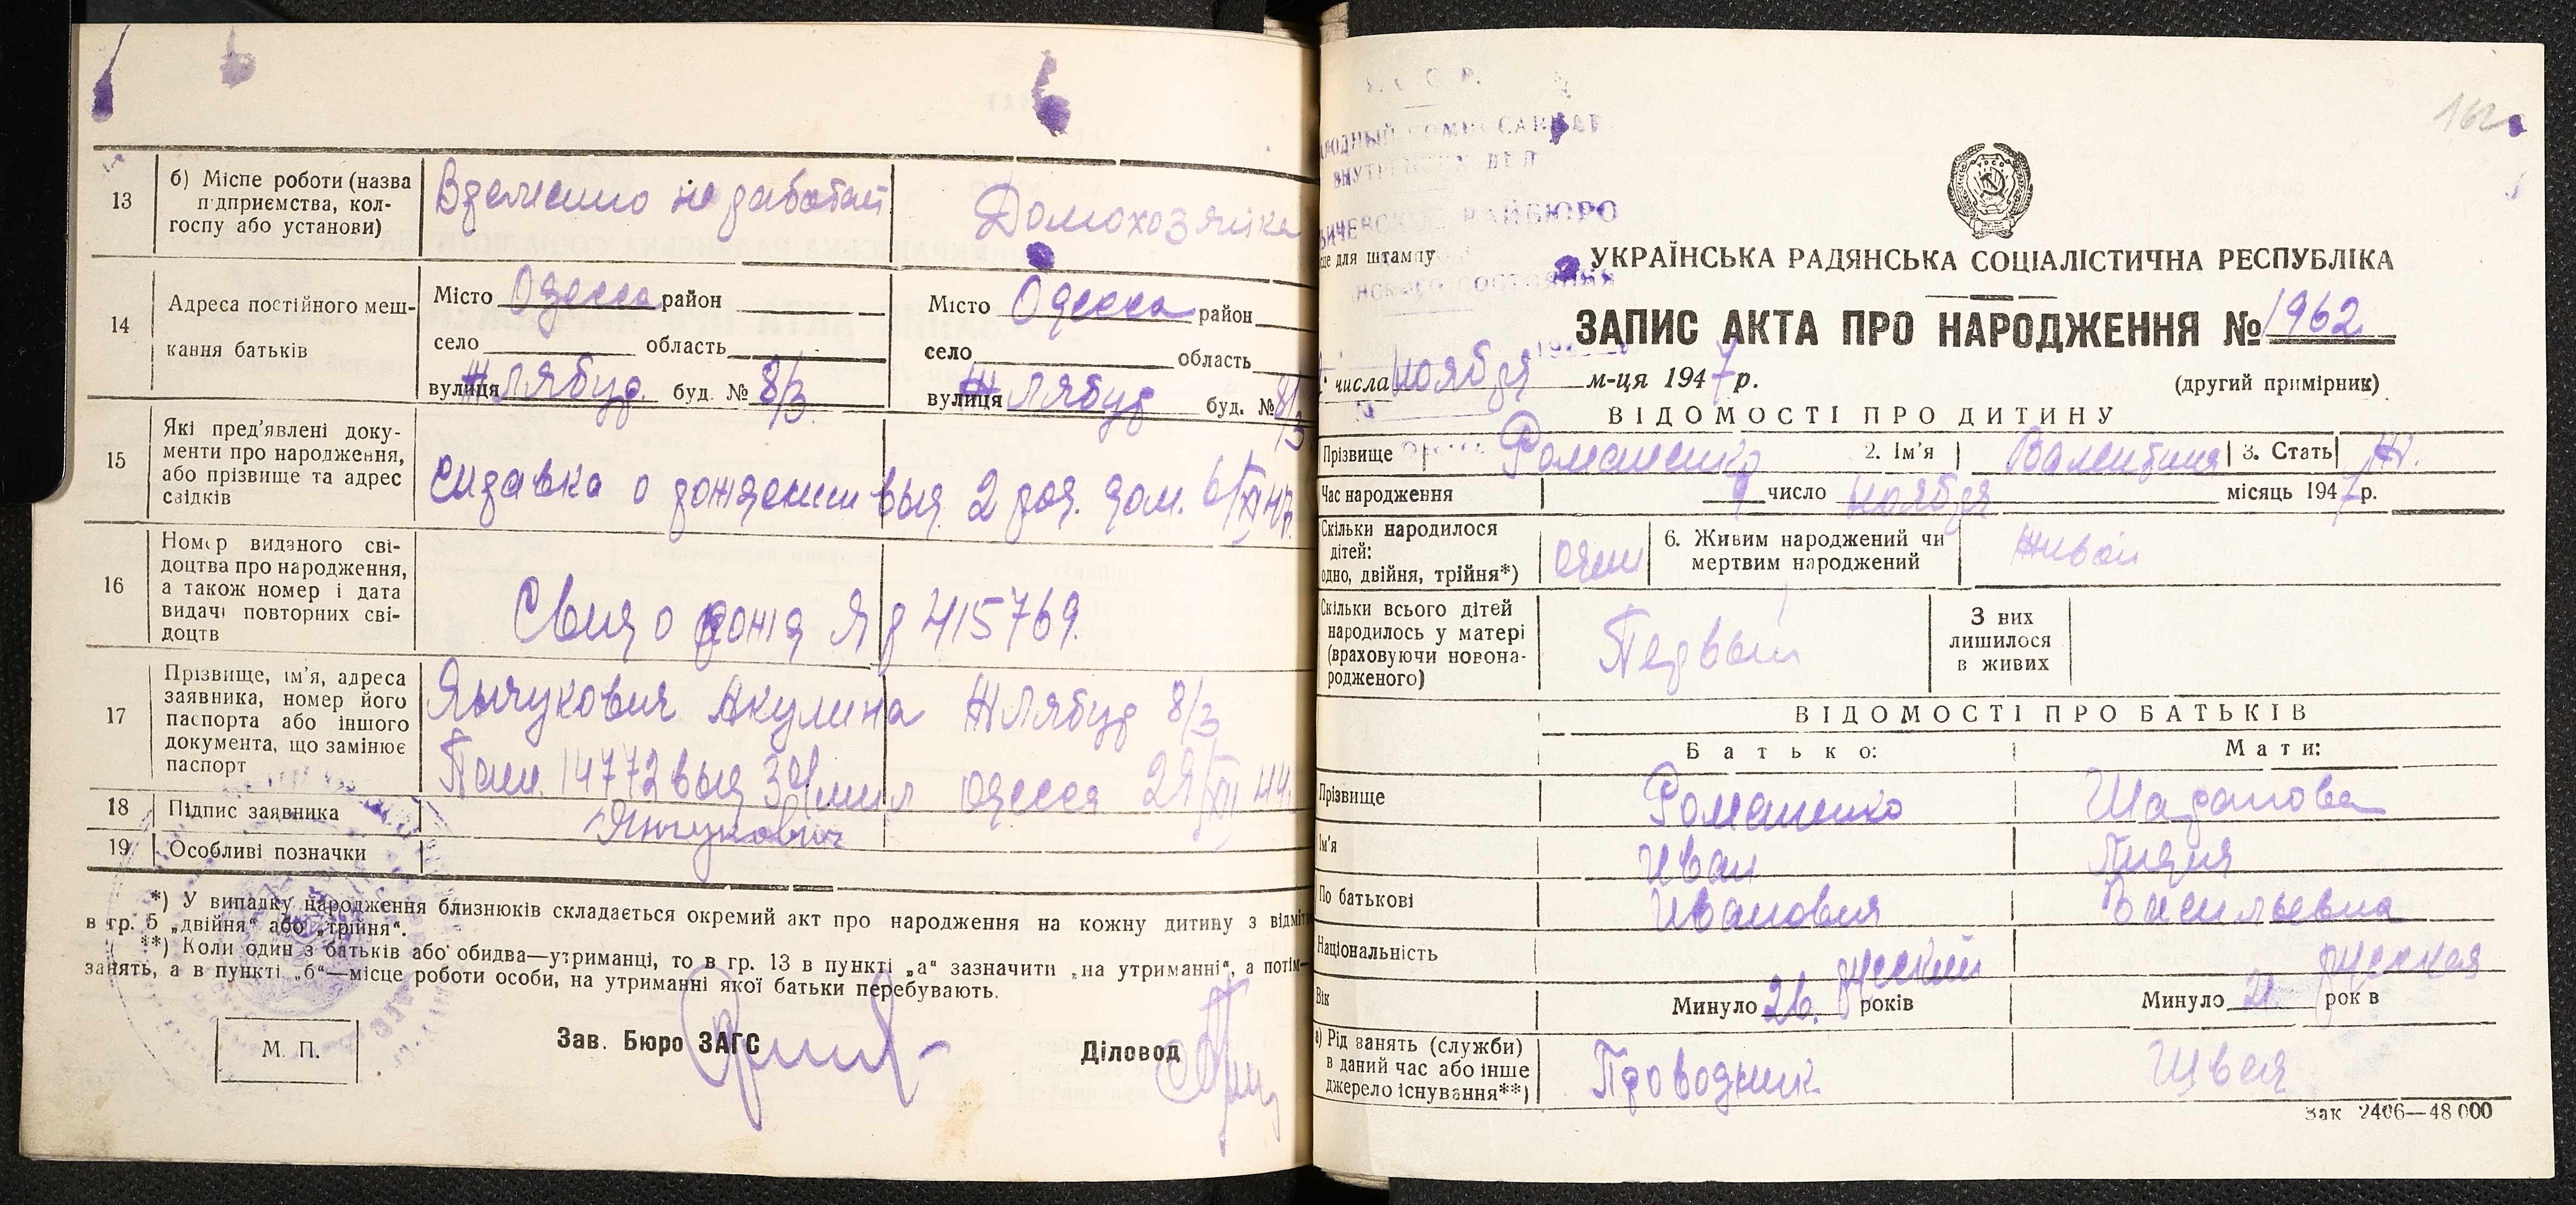 13
б) Місце роботи (назва
підприємства, кол-
госпу або установи)
не работает
Домохозяйка
14
Адреса постійного меш-
кання батьків
Місто Одесса район
село область
вулиця Жлябуд. буд. № 8/3.
Місто Одесса район
село область
вулиця Жлябуд буд. № 8/3
15
Які пред'явлені доку-
менти про народження,
або прізвище та адрес
свідків
справка о рождении выд. 2 род. дом. 6/XI 47.
16
Номер виданого сві-
доцтва про народження,
а також номер і дата
видачі повторних сві-
доцтв
Свид о рожд 415769.
17
Прізвище, ім'я, адреса
заявника, номер його
паспорта або іншого
документа, що замінює
паспорт
Янчукович Акулина Жлябуд 8/3
14772 выд 3 Одесса
18
Підпис заявника
Янчукович
19
Особливі позначки
*) У випадку народження близнюків складається окремий акт про народження на кожну дитину з відміт
в гр. 5 „двійня“ або „трійня“.
**) Коли один з батьків або обидва—утриманці, то в гр. 13 в пункті „а“ зазначити „на утриманні“, а потім—
занять, а в пункті „б“—місце роботи особи, на утриманні якої батьки перебувають.
М. П.
Зав. Бюро ЗАГС
Діловод
162
РАЙБЮРО
це для штампу
УКРАЇНСЬКА РАДЯНСЬКА СОЦІАЛІСТИЧНА РЕСПУБЛІКА
ЗАПИС АКТА ПРО НАРОДЖЕННЯ № 1962
числа ноября м-ця 1947 р.
(другий примірник)
ВІДОМОСТІ ПРО ДИТИНУ
Прізвище Романенко 2. Ім'я Валентина 3. Стать Ж.
Час народження число ноября місяць 1947 р.
Скільки народилося
дітей:
одно, двійня, трійня*)
один
6. Живим народжений чи
мертвим народжений
живой
Скільки всього дітей
народилось у матері
(враховуючи новона-
родженого)
Первый
З них
лишилося
в живих
ВІДОМОСТІ ПРО БАТЬКІВ
Батько: Мати:
Прізвище Романенко Шарапова
Ім'я Иван Лидия
По батькові Иванович Васильевна
Національність русский русская
Вік Минуло 26. років Минуло 21. рок в
а) Рід занять (служби)
в даний час або інше
джерело існування**)
Проводник Швея
Зак 2406—48 000